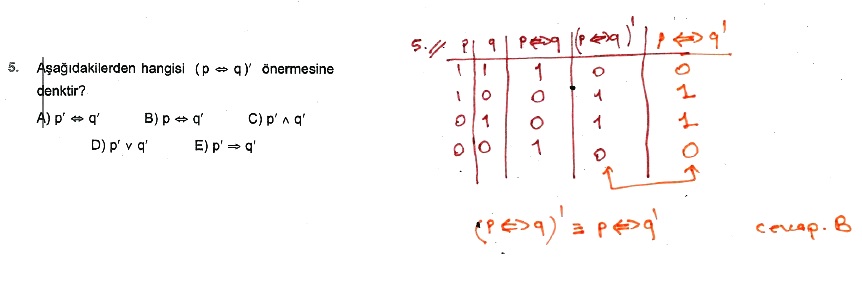 5. Aşağıdakilerden hangisi (p ⇔ q)′ önermesine
denktir?
A) p′ ⇔ q′ B) p ⇔ q′ C) p′ ∧ q′
D) p′ ∨ q′ E) p′ ⇒ q′
5.// p q p⇔q (p⇔q)' p⇔q'
1 1 1 0 0
1 0 0 1 1
0 1 0 1 1
0 0 1 0 0
(p⇔q)' ≡ p⇔q' cevap. B